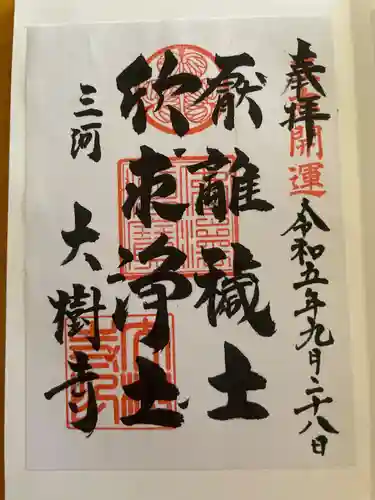 奉拝
開運
令和五年九月二十八日
厭離穢土
欣求浄土
三河
大樹寺